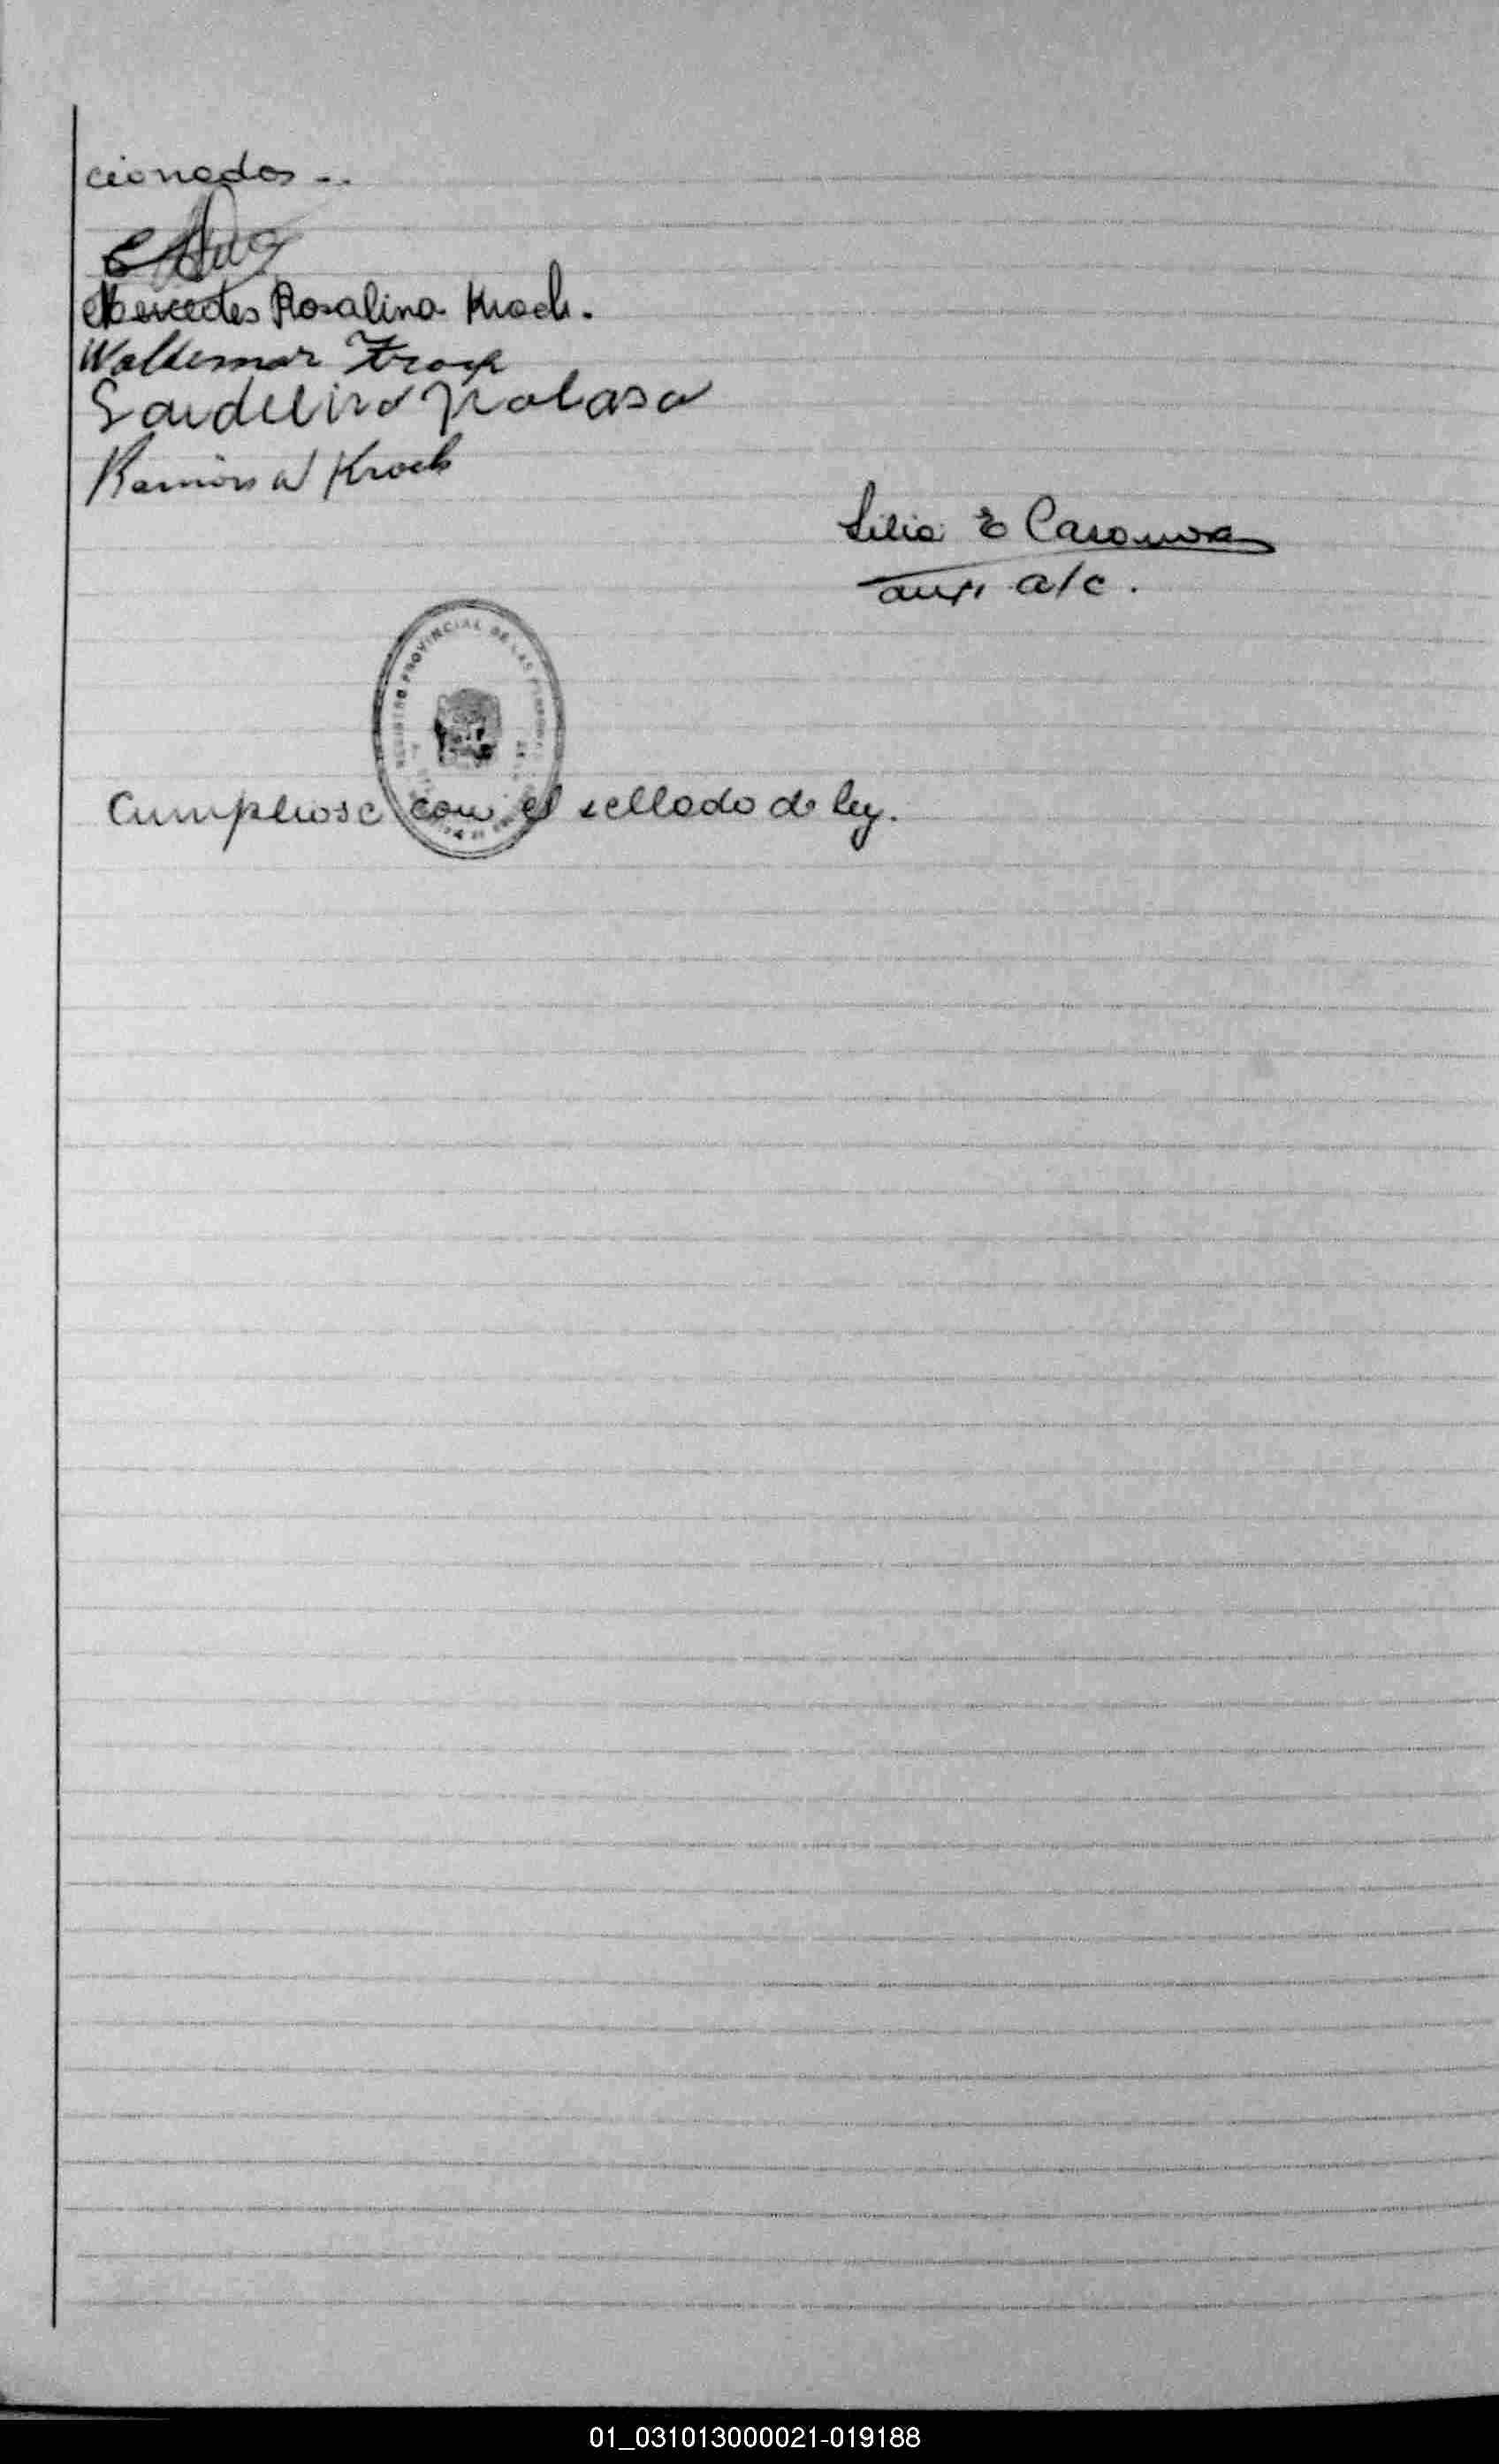 cionados -.
Mercedes Rosalina Kroch.
Waldemar Kroch
Ramón W Kroch
Lilia E Casanova
aux. a/c.
REGISTRO PROVINCIAL DE LAS PERSONAS
Cumpliose con el sellado de ley.
01_031013000021-019188